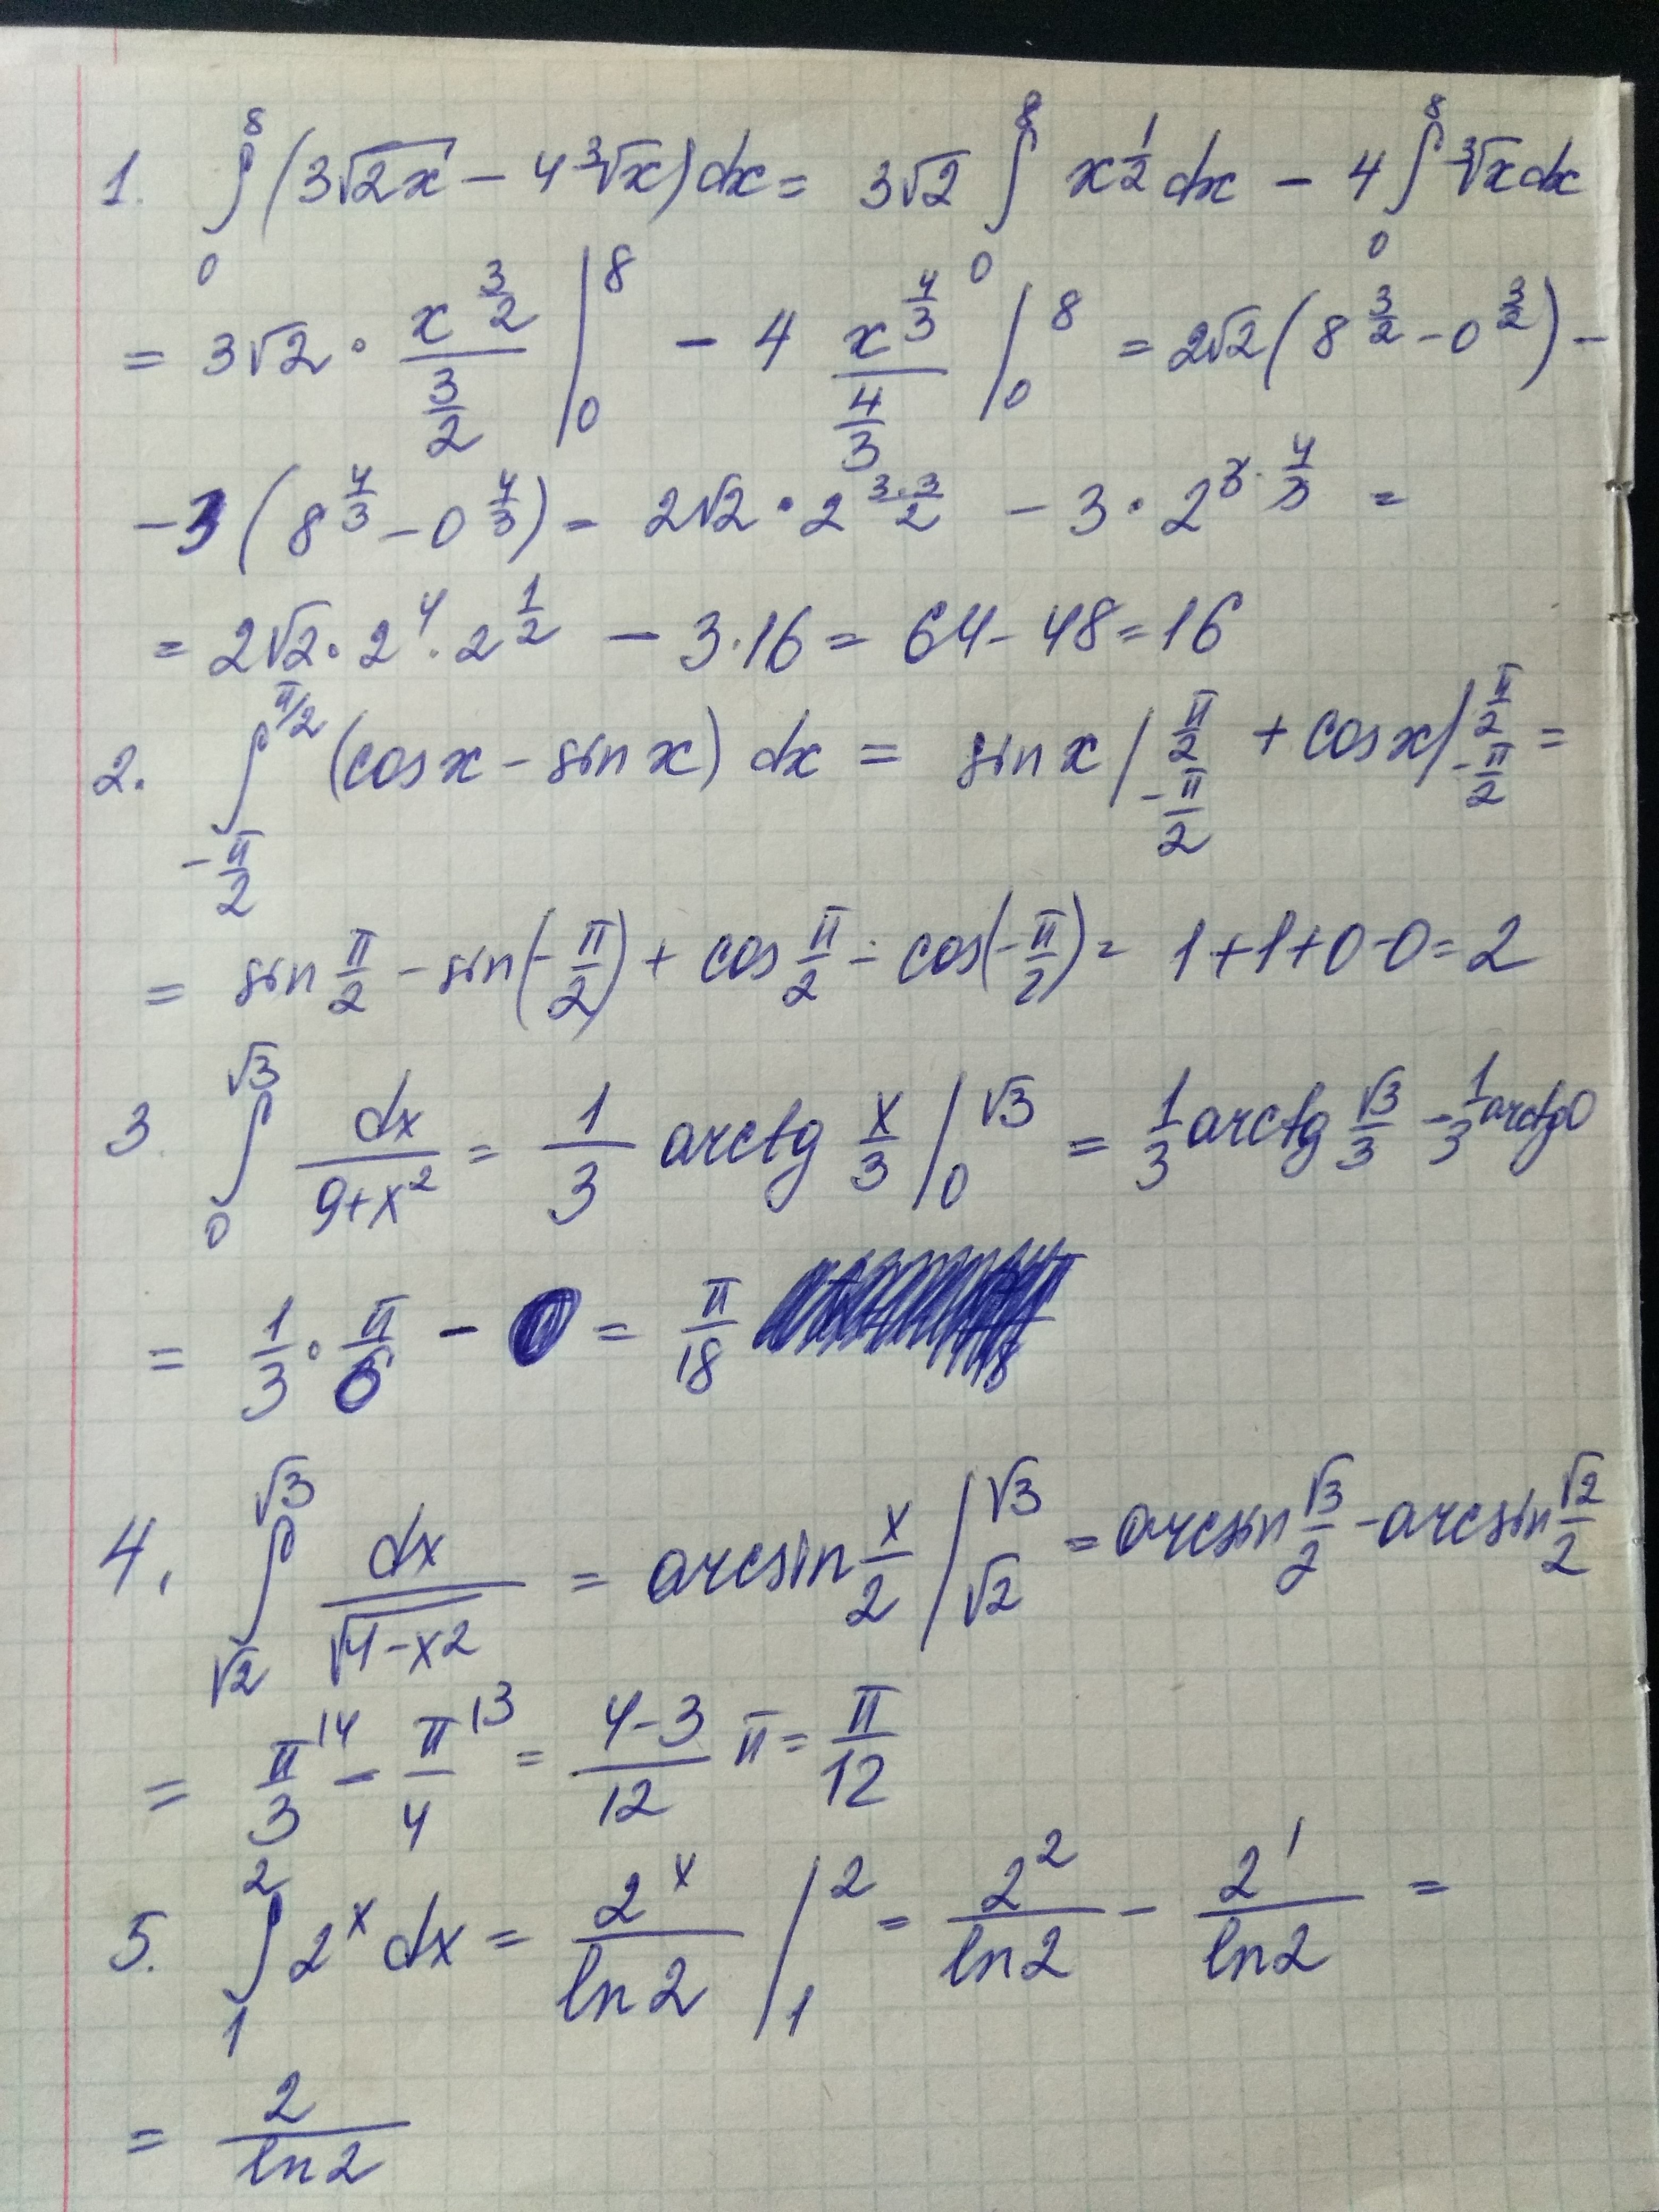 1. ∫₀⁸ (3√(2x) − 4∛x) dx = 3√2 ∫₀⁸ x^(1/2) dx − 4 ∫₀⁸ ∛x dx
= 3√2 · x^(3/2)/(3/2) |₀⁸ − 4 x^(4/3)/(4/3) |₀⁸ = 2√2 (8^(3/2) − 0^(3/2)) −
−3 (8^(4/3) − 0^(4/3)) = 2√2 · 2^(3·3/2) − 3 · 2^(3·4/3) =
= 2√2 · 2⁴ · 2^(1/2) − 3·16 = 64 − 48 = 16
2. ∫_(−π/2)^(π/2) (cos x − sin x) dx = sin x |_(−π/2)^(π/2) + cos x |_(−π/2)^(π/2) =
= sin π/2 − sin(−π/2) + cos π/2 − cos(−π/2) = 1+1+0−0 = 2
3. ∫₀^(√3) dx/(9+x²) = 1/3 arctg x/3 |₀^(√3) = 1/3 arctg √3/3 − 1/3 arctg 0
= 1/3 · π/6 − 0 = π/18
4. ∫_(√2)^(√3) dx/√(4−x2) = arcsin x/2 |_(√2)^(√3) = arcsin √3/2 − arcsin √2/2
= π/3 |4 − π/4 |3 = (4−3)/12 π = π/12
5. ∫₁² 2^x dx = 2^x/ln2 |₁² = 2²/ln2 − 2¹/ln2 =
= 2/ln2